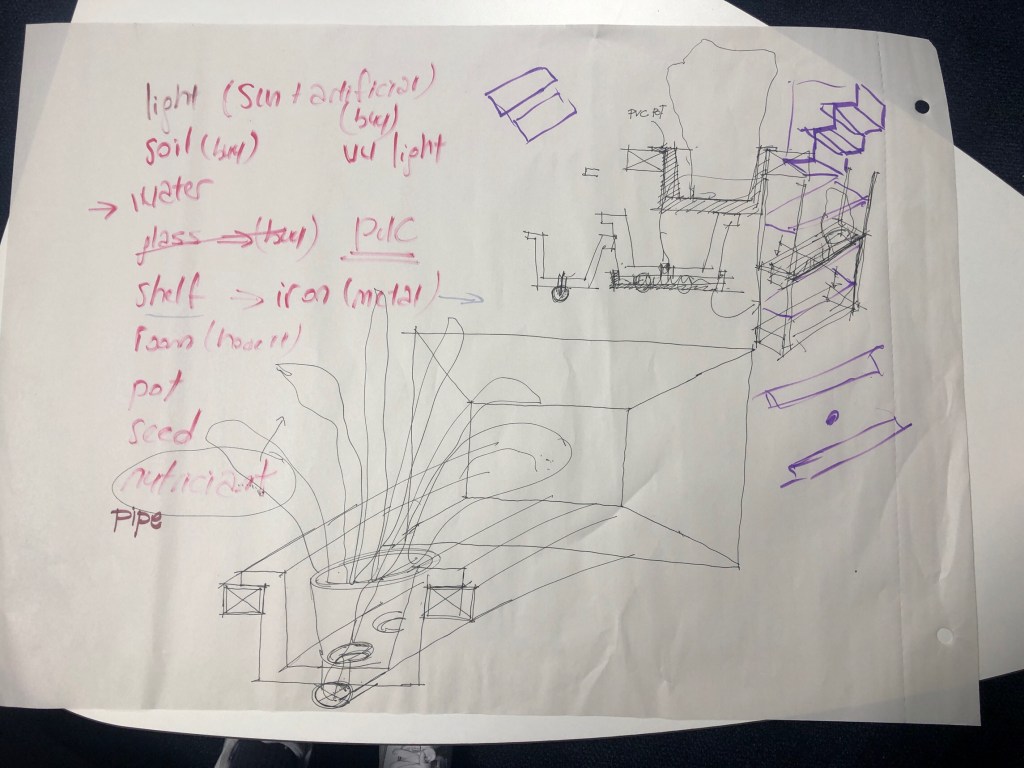 light (sun + artificial)
(buy)
soil (buy) uv light
→ water
glass → (buy) PVC
shelf → iron (metal) →
room
pot
seed
nutriciant
pipe
PVC POT